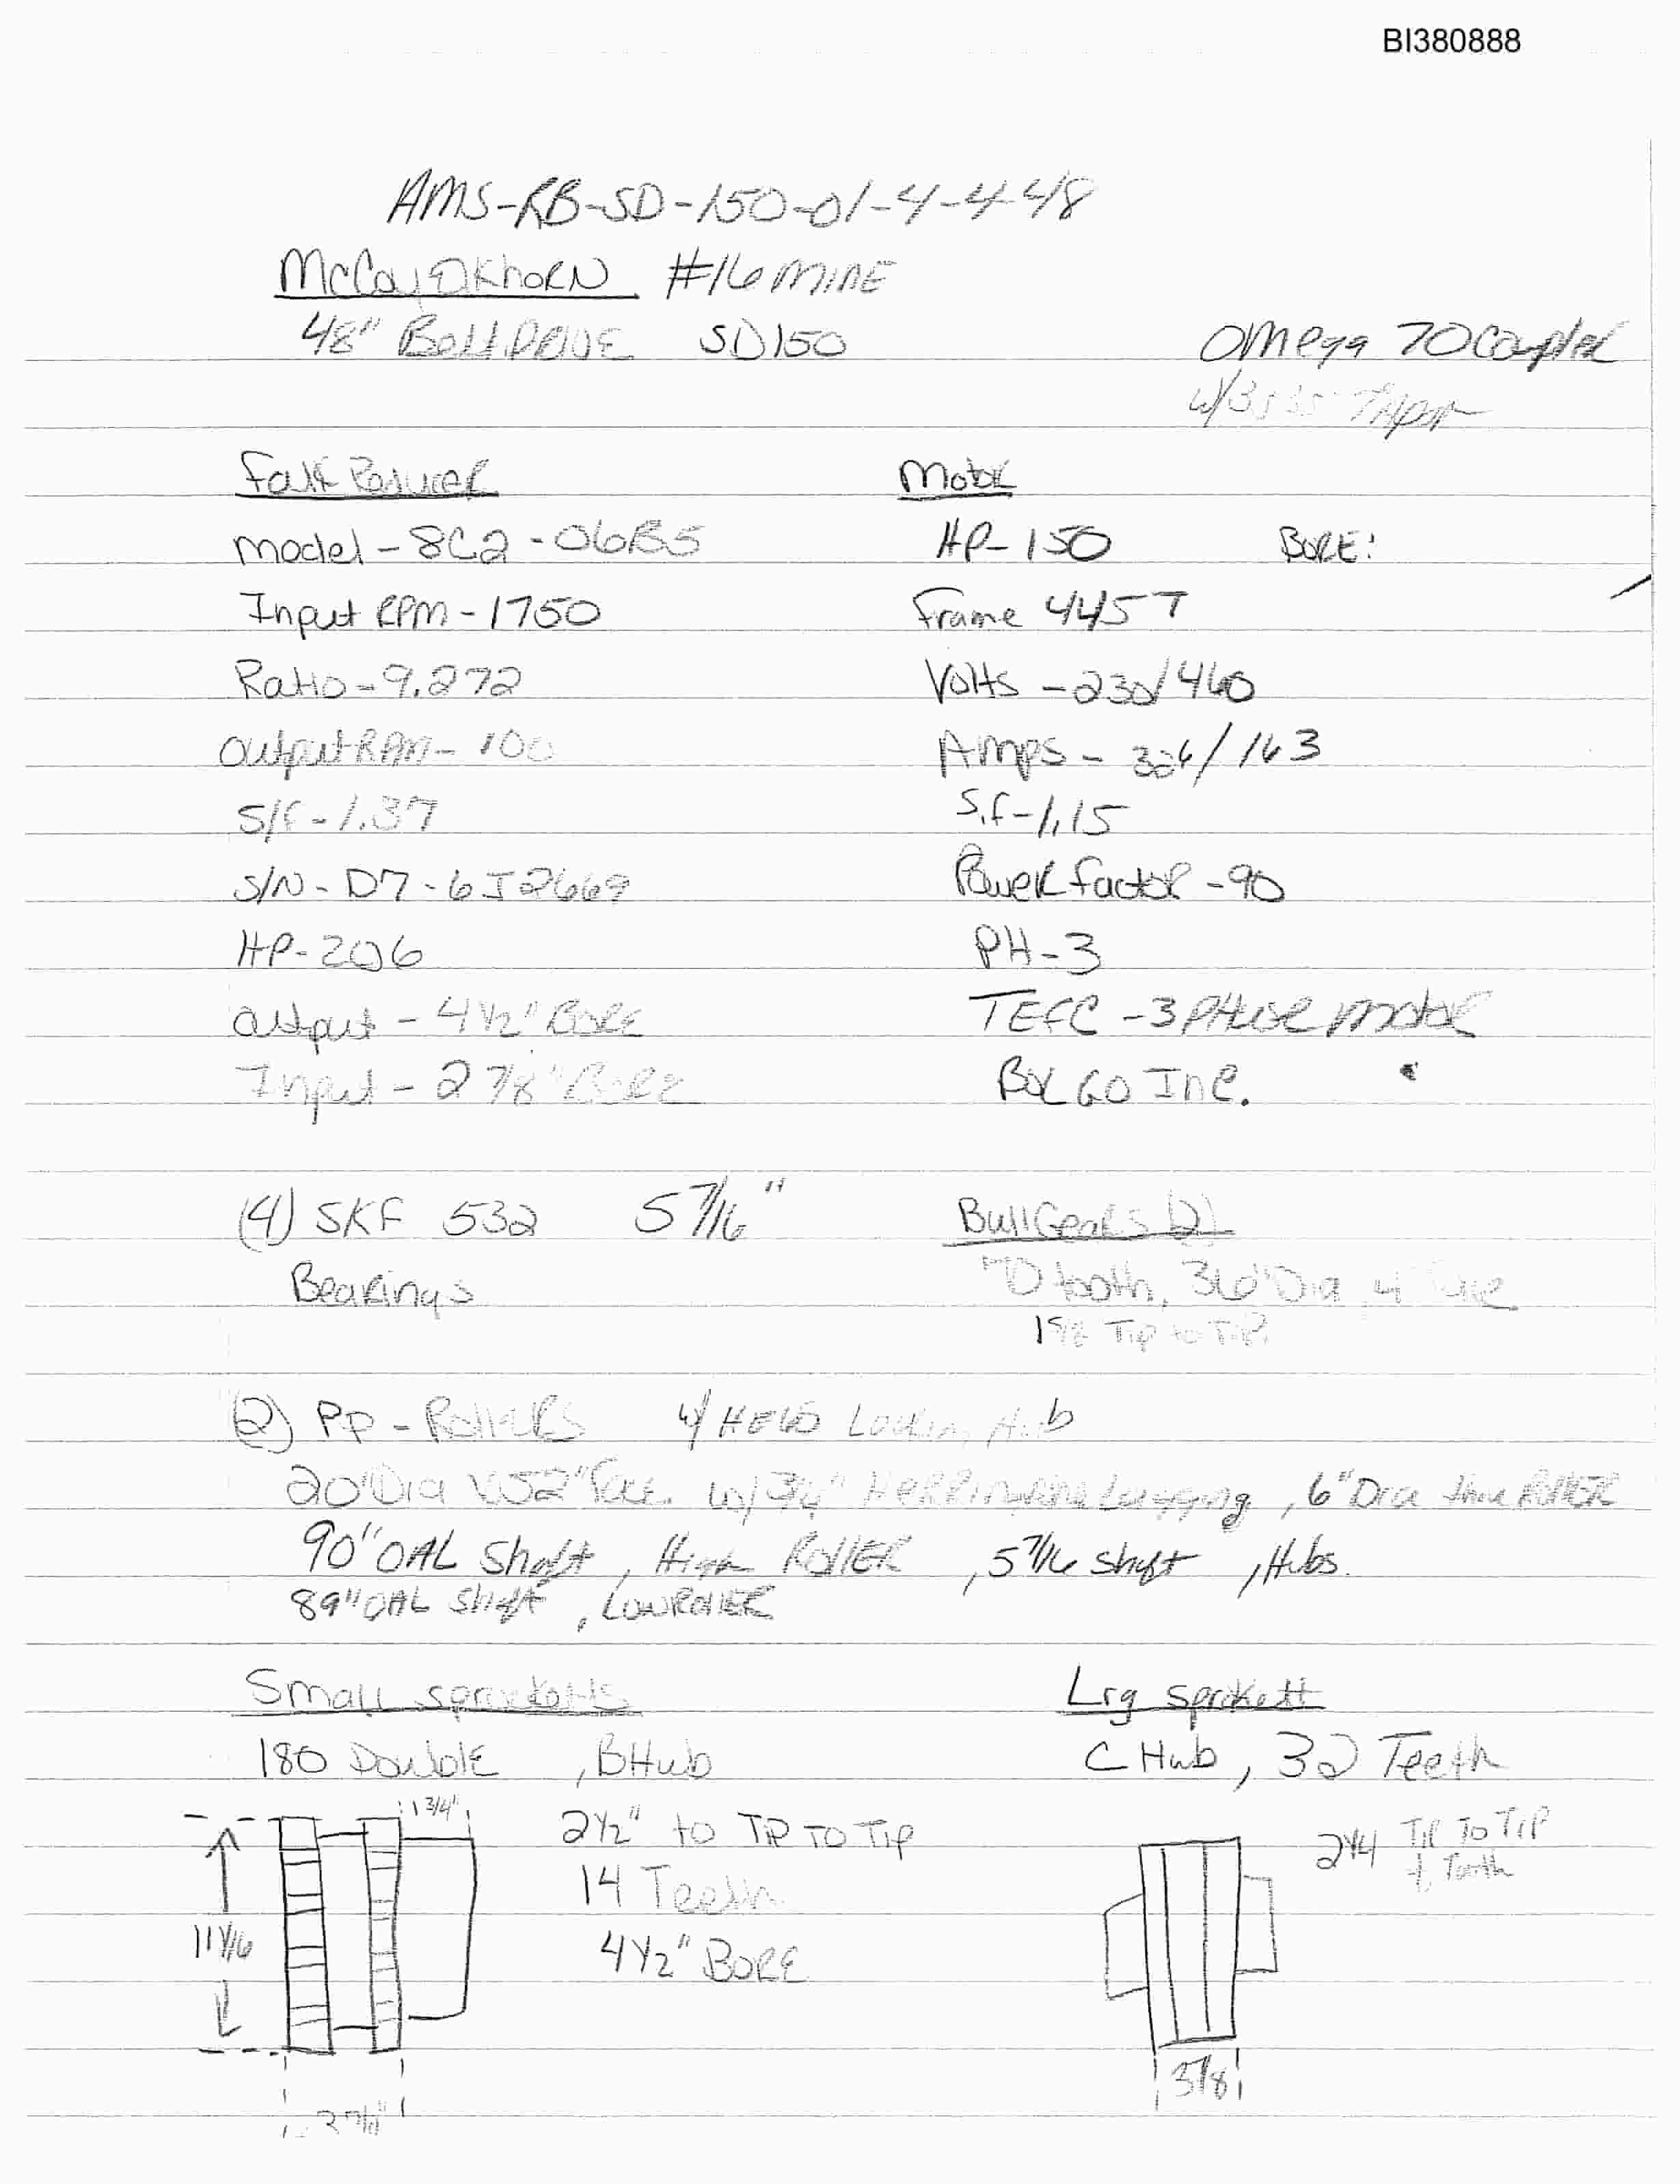 BI380888
AMS-RB-SD-150-01-4-4-48
McCoy Elkhorn #16 MINE
48" Belt DRIVE SD150
Omega 70 Coupler
w/3535 Taper
Falk Reducer
Model - 8C2-06B5
Input RPM - 1750
Ratio - 9.272
Output RPM - 100
S/F - 1.37
S/N - D7-6J2669
HP - 206
Output - 4 1/2" BORE
Input - 2 7/8" BORE
Motor
HP - 150 BORE:
Frame 445T
Volts - 230/460
Amps - 326/163
S.f - 1.15
Power factor - 90
PH - 3
TEFC - 3 PHase motor
INC.
(4) SKF 532 5 7/16"
Bearings
Bull Gears (2)
70 tooth, 36" Dia 4"
Tip to Tip
(2) PP - Rollers w/ HE65 Locking Hub
20" Dia x 52" Face w/ 3/4" Herringbone Lagging, 6" Dia thru ROLLER
90" OAL Shaft, High ROLLER, 5 7/16 shaft, Hubs.
89" OAL Shaft, LOW ROLLER
Small sprocketts
180 Double, B Hub
1 3/4"
2 1/2" to Tip TO Tip
14 Teeth
4 1/2" BORE
11 1/16
Lrg sprokett
C Hub, 32 Teeth
2 1/4 Tip To Tip
of Tooth
3 7/8